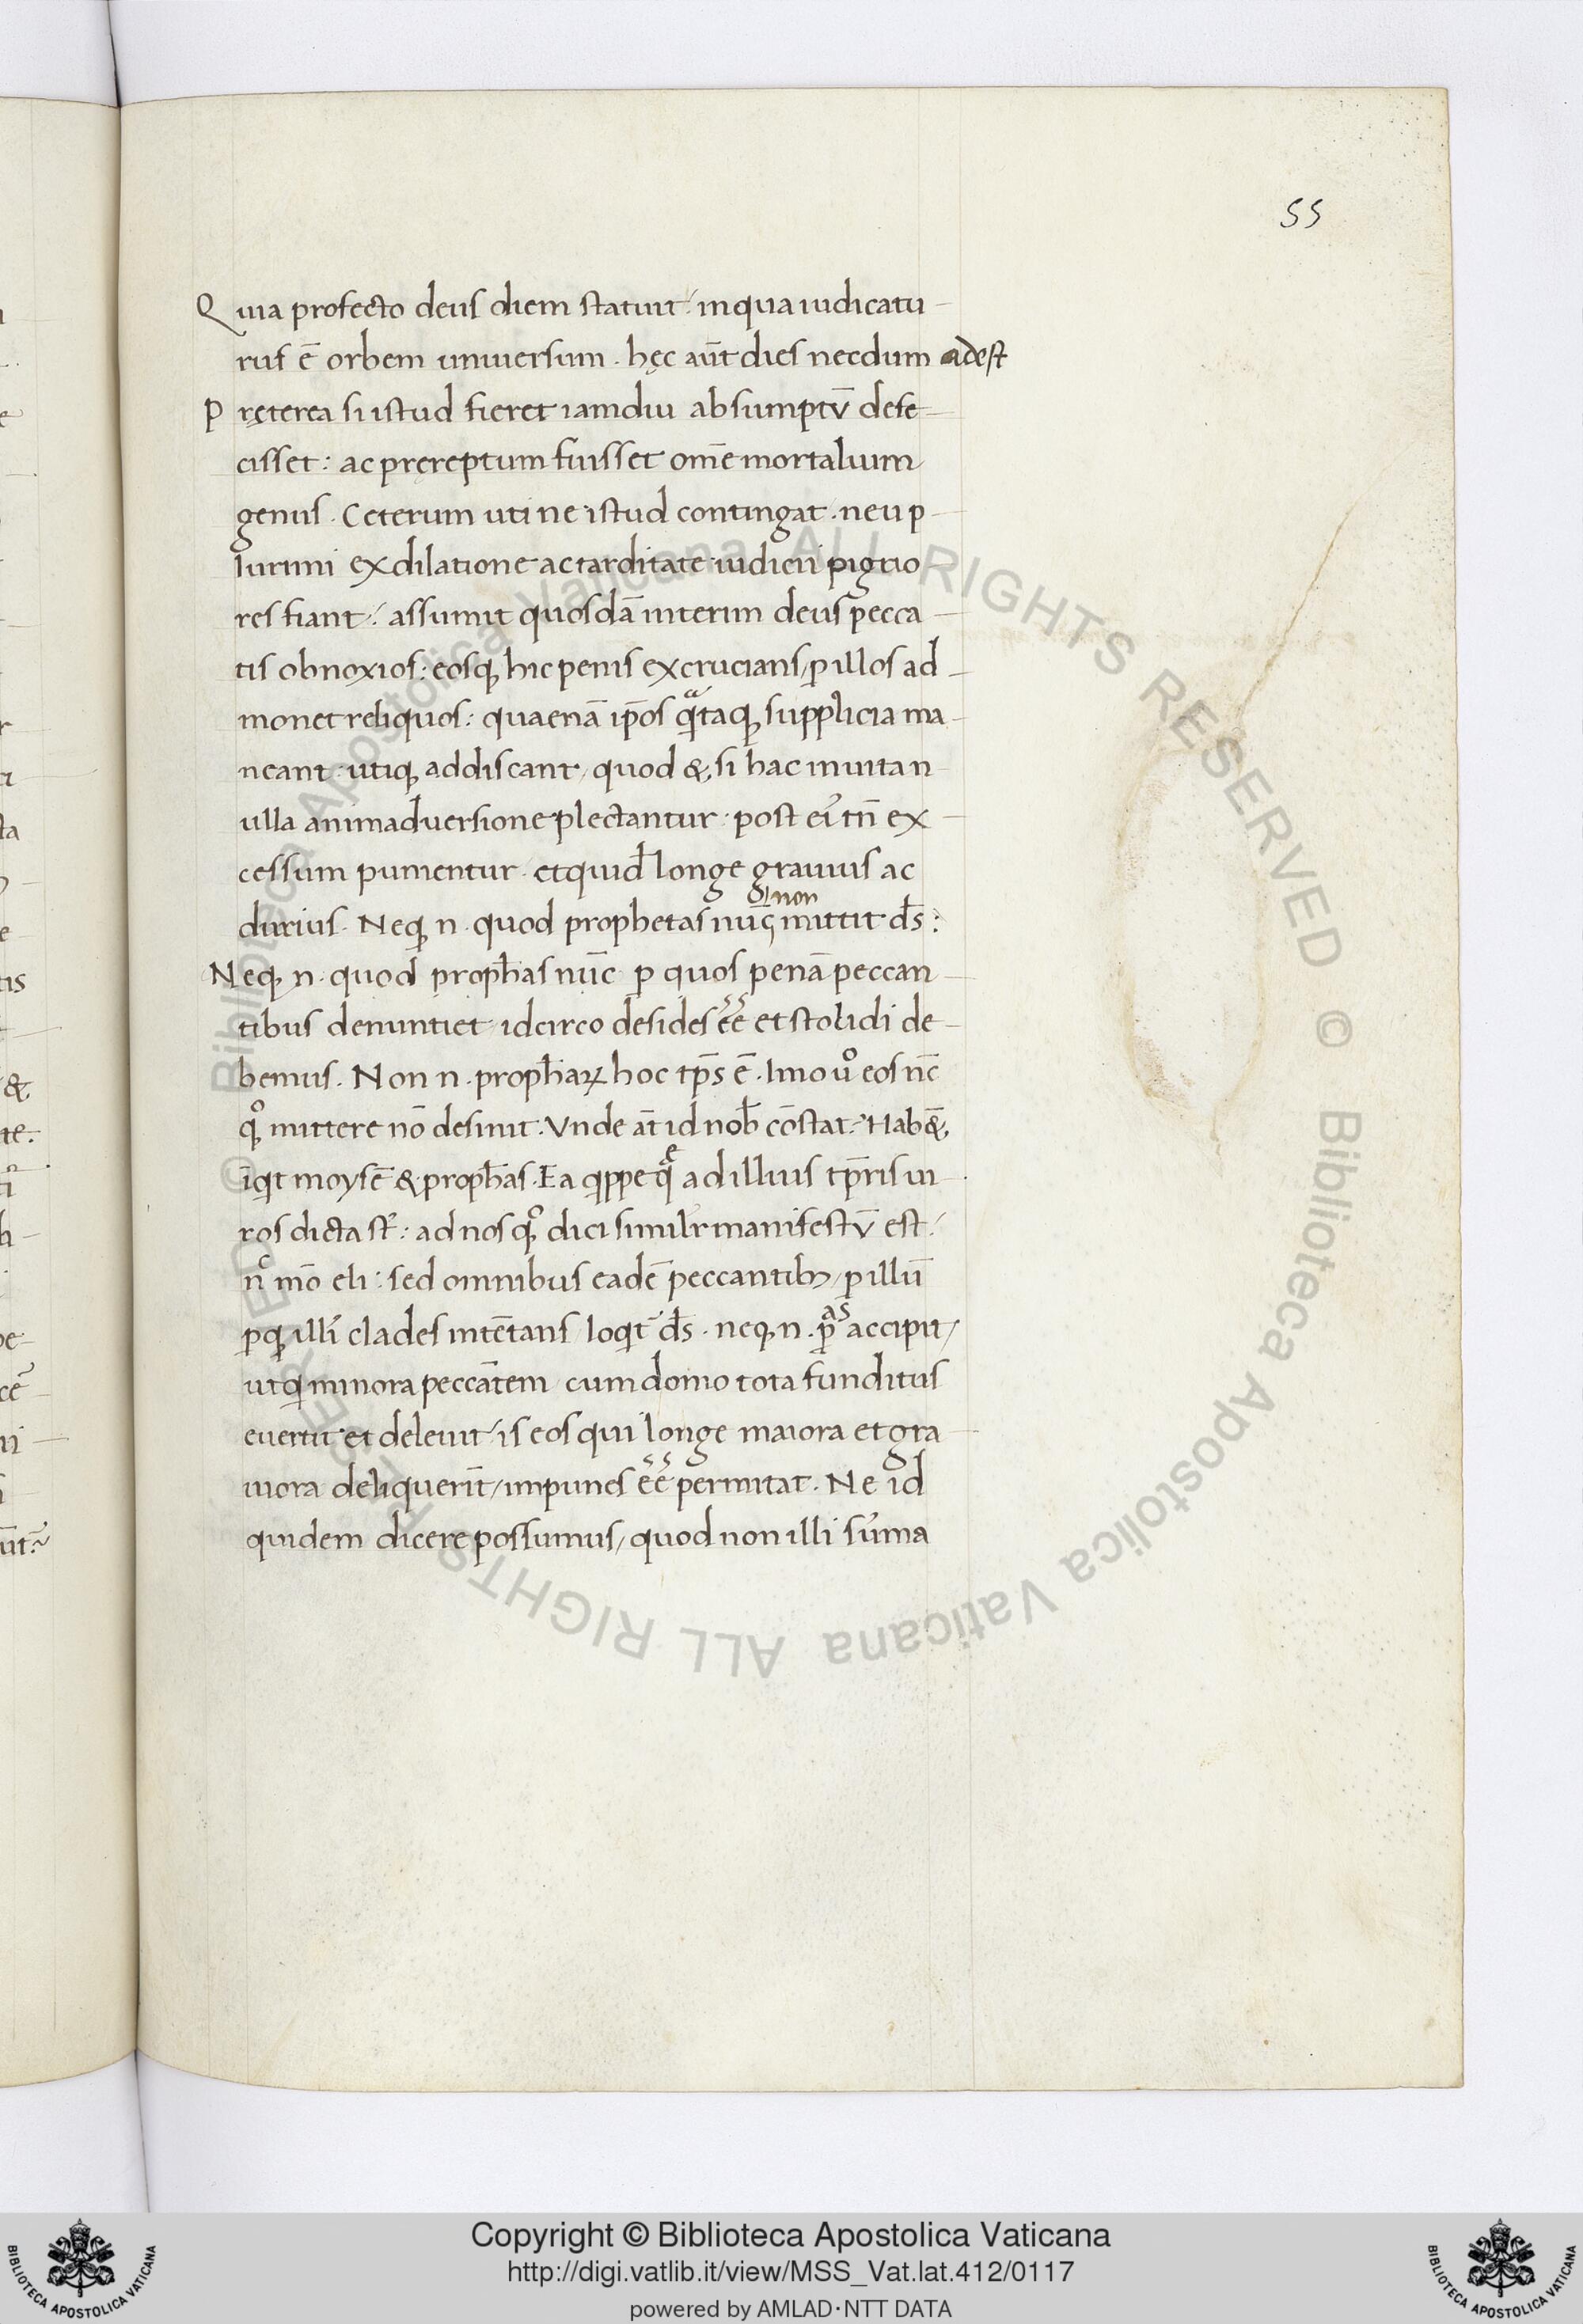 55
Quia profecto deus diem statuit / in qua iudicatu
rus ē orbem uniuersum . hęc aūt dies necdum adest
Pręterea si istud fieret iamdiu absumptū defe
cisset : ac pręreptum fuisset om̄e mortalium
genus . Ceterum uti ne istud contingat . neu p
lurimi ex dilatione ac tarditate iudicii pigrio
res fiant / assumit quosdā interim deus pecca
tis obnoxios : eosq; hic penis excrucians / ꝑ illos ad
monet reliquos : quaenā ip̄os qᷓtaq; supplicia ma
neant : utiq; addiscant / quod &si hac in uita n
ulla animaduersione plectantur . post eiꝰ tn̄ ex
cessum punientur . et quid̄ longe grauius ac
durius . Neq; n . quod prophetas nūc non mittit ds̄ :
Neq; n . quod proph̄as nūc ꝑ quos penā peccan
tibus denuntiet idcirco desides eē et stolidi de
bemus . Non n . proph̄aꝝ hoc tp̄s ē . Imo uͦ eos nc̄
qͦ; mittere nō desinit . Vnde āt id nob̄ cōstat : Hab&̄,
īqt moysē & proph̄as . Ea qppe qͤ ad illius tp̄ris ui
ros dicta st̄ : ad nos qͦ; dici similr manifestū est /
nͨ mō eli : sed omnibus eadē peccantib; / ꝑ illū
ꝑq; illiꝰ clades intētans loqt ds̄ . neq; n . ꝑas accipit /
ut q minora peccātem cum domo tota funditus
euertit et deleuit / is eos qui longe maiora et gra
uiora deliquerīt / impunes eē permitat . Ne id
quidem dicere possumus / quod non illi sūma
© Biblioteca Apostolica Vaticana ALL RIGHTS RESERVED © Biblioteca Apostolica Vaticana ALL RIGHTS RESERVED
Copyright © Biblioteca Apostolica Vaticana
http://digi.vatlib.it/view/MSS_Vat.lat.412/0117
powered by AMLAD·NTT DATA
BIBLIOTECA APOSTOLICA VATICANA
BIBLIOTECA APOSTOLICA VATICANA